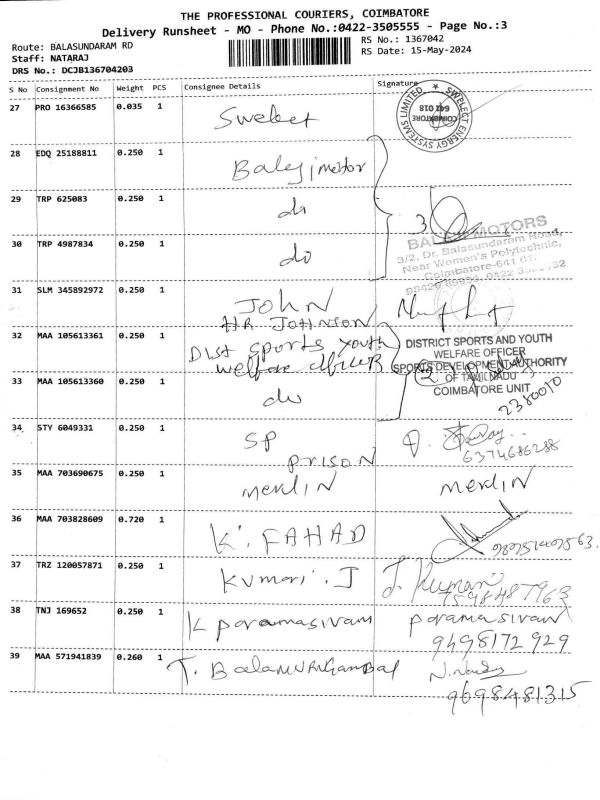 THE PROFESSIONAL COURIERS, COIMBATORE
Delivery Runsheet - MO - Phone No.:0422-3505555 - Page No.:3
Route: BALASUNDARAM RD
Staff: NATARAJ
DRS No.: DCJB136704203
RS No.: 1367042
RS Date: 15-May-2024
S No Consignment No Weight PCS Consignee Details Signature
27 PRO 16366585 0.035 1 Swelect
SWELECT ENERGY SYSTEMS LIMITED
COIMBATORE
641 018
28 EDQ 25188811 0.250 1 Balaji motor
29 TRP 625083 0.250 1 do
3
30 TRP 4987834 0.250 1 do
MOTORS
3/2, Dr. Balasundaram Road,
Near Women's Polytechnic,
Coimbatore-641
31 SLM 345892972 0.250 1 JOHN
HR JOHNSON
32 MAA 105613361 0.250 1 Dist sports youth
welfare officer
DISTRICT SPORTS AND YOUTH
WELFARE OFFICER
SPORTS DEVELOPMENT AUTHORITY
OF TAMILNADU
COIMBATORE UNIT
33 MAA 105613360 0.250 1 do
2
2380010
34 STY 6049331 0.250 1 SP
PRISON
6374686288
35 MAA 703690675 0.250 1 merlin merlin
36 MAA 703828609 0.720 1 K. FAHAD
37 TRZ 120057871 0.250 1 Kumari . J J. Kumari
38 TNJ 169652 0.250 1 K paramasivam paramasivam
9498172929
39 MAA 571941839 0.260 1 T. Balamurugan
9698481315